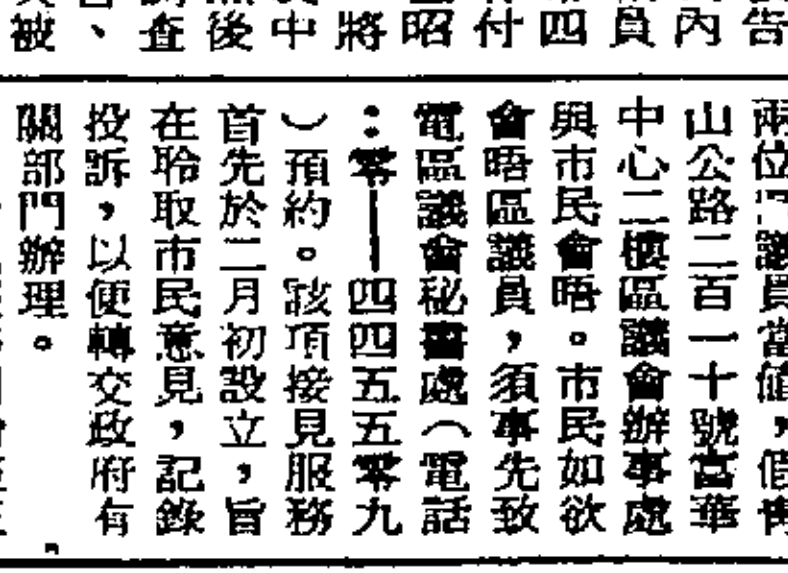 告
內
員
四
付
昭
將
中
後
查
、
被
兩位議員當値，假靑
山公路二百一十號富華
中心二樓區議會辦事處
與市民會晤。市民如欲
會晤區議員，須事先致
電區議會秘書處（電話
：零—四四五五零九
）預約。該項接見服務
首先於二月初設立，旨
在聆取市民意見，記錄
投訴，以便轉交政府有
關部門辦理。